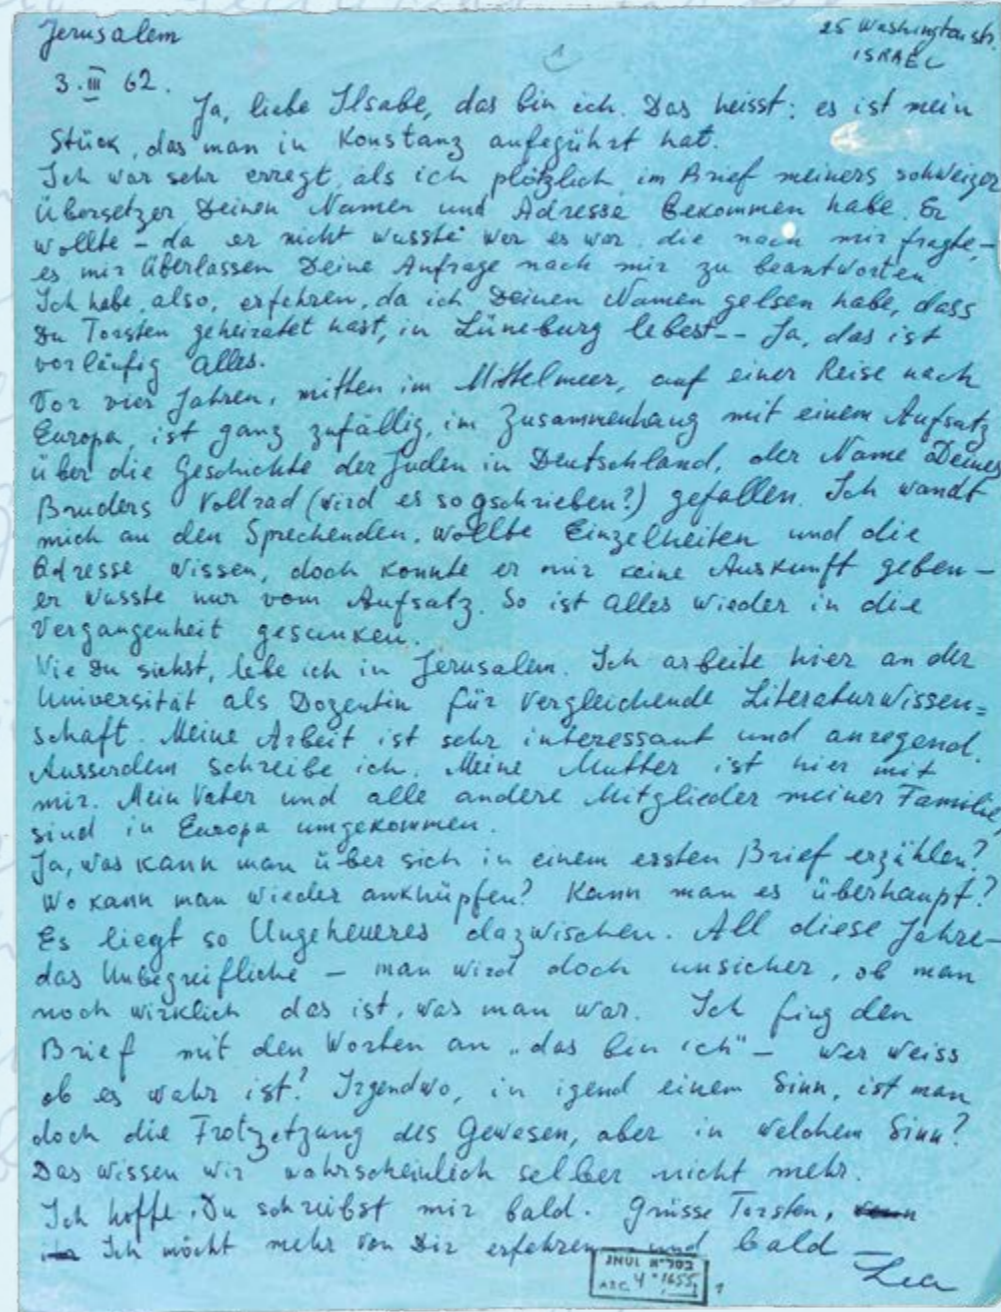 Jerusalem
25 Washington str.
ISRAEL
3. III 62.
Ja, liebe Ilsabe, das bin ich. Das heisst: es ist mein
Stück, das man in Konstanz aufgeführt hat.
Ich war sehr erregt, als ich plötzlich im Brief meiners schweizer
Übersetzer Deinen Namen und Adresse bekommen habe. Er
wollte – da er nicht wusste wer es war, die nach mir fragte, –
es mir überlassen Deine Anfrage nach mir zu beantworten.
Ich habe, also, erfahren, da ich Deinen Namen gelsen habe, dass
Du Torsten geheiratet hast, in Lüneburg lebest-- Ja, das ist
vorläufig alles.
Vor vier Jahren, mitten im Mittelmeer, auf einer Reise nach
Europa, ist ganz zufällig, im Zusammenhang mit einem Aufsatz
über die Geschichte der Juden in Deutschland, der Name Deines
Bruders Vollrad (wird es so gschrieben?) gefallen. Ich wandt
mich an den Sprechenden, wollte Einzelheiten und die
Adresse wissen, doch konnte er mir keine Auskunft geben –
er wusste nur vom Aufsatz. So ist alles wieder in die
Vergangenheit gesunken.
Wie Du siehst, lebe ich in Jerusalem. Ich arbeite hier an der
Universität als Dozentin für Vergleichende Literaturwissen=
schaft. Meine Arbeit ist sehr interessant und anregend.
Ausserdem schreibe ich. Meine Mutter ist hier mit
mir. Mein Vater und alle andere Mitglieder meiner Familie,
sind in Europa umgekommen.
Ja, was kann man über sich in einem ersten Brief erzählen?
Wo kann man wieder anknüpfen? Kann man es überhaupt?
Es liegt so Ungeheueres dazwischen. All diese Jahre –
das Unbegreifliche – man wird doch unsicher, ob man
noch wirklich das ist, was man war. Ich fing den
Brief mit den Worten an „das bin ich" – wer weiss
ob es wahr ist? Irgendwo, in igend einem Sinn, ist man
doch die Frotzetzung des Gewesen, aber in welchem Sinn?
Das wissen wir wahrscheinlich selber nicht mehr.
Ich hoffe, Du schreibst mir bald. Grüsse Torsten,
Ich möcht mehr von Dir erfahren und bald –
Lea
JNUL בסל"א
ARC. 4° 1655
1